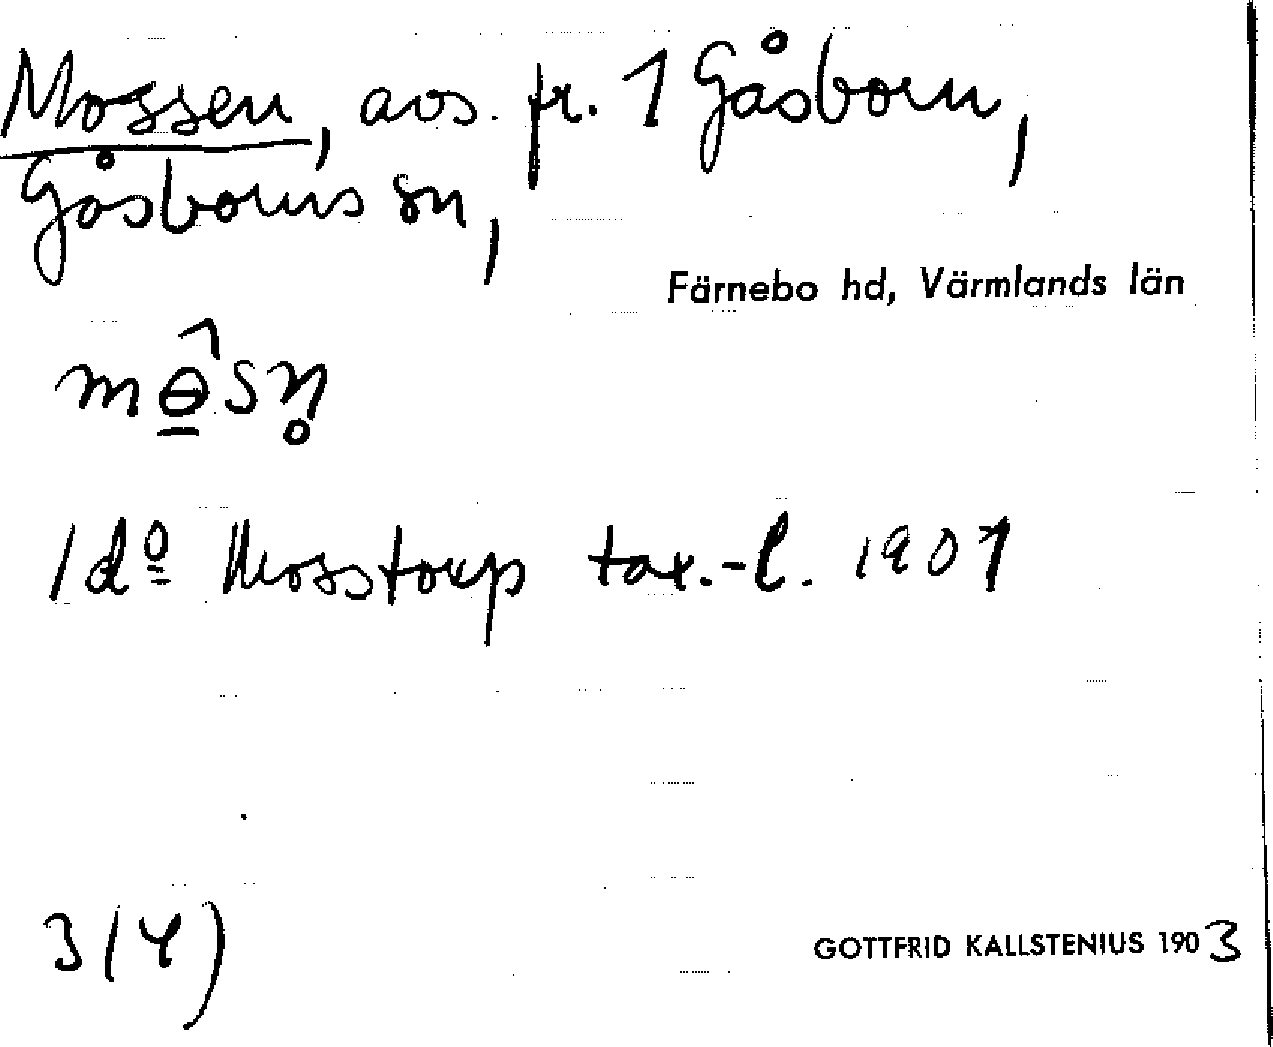 Mossen, avs. fr. 1 Gåsborn,
Gåsborns sn,
Färnebo hd, Värmlands län
mɵ̲̂sn̥
/d:o Mosstorp tax.-l. 1901
3(4)
GOTTFRID KALLSTENIUS 1903